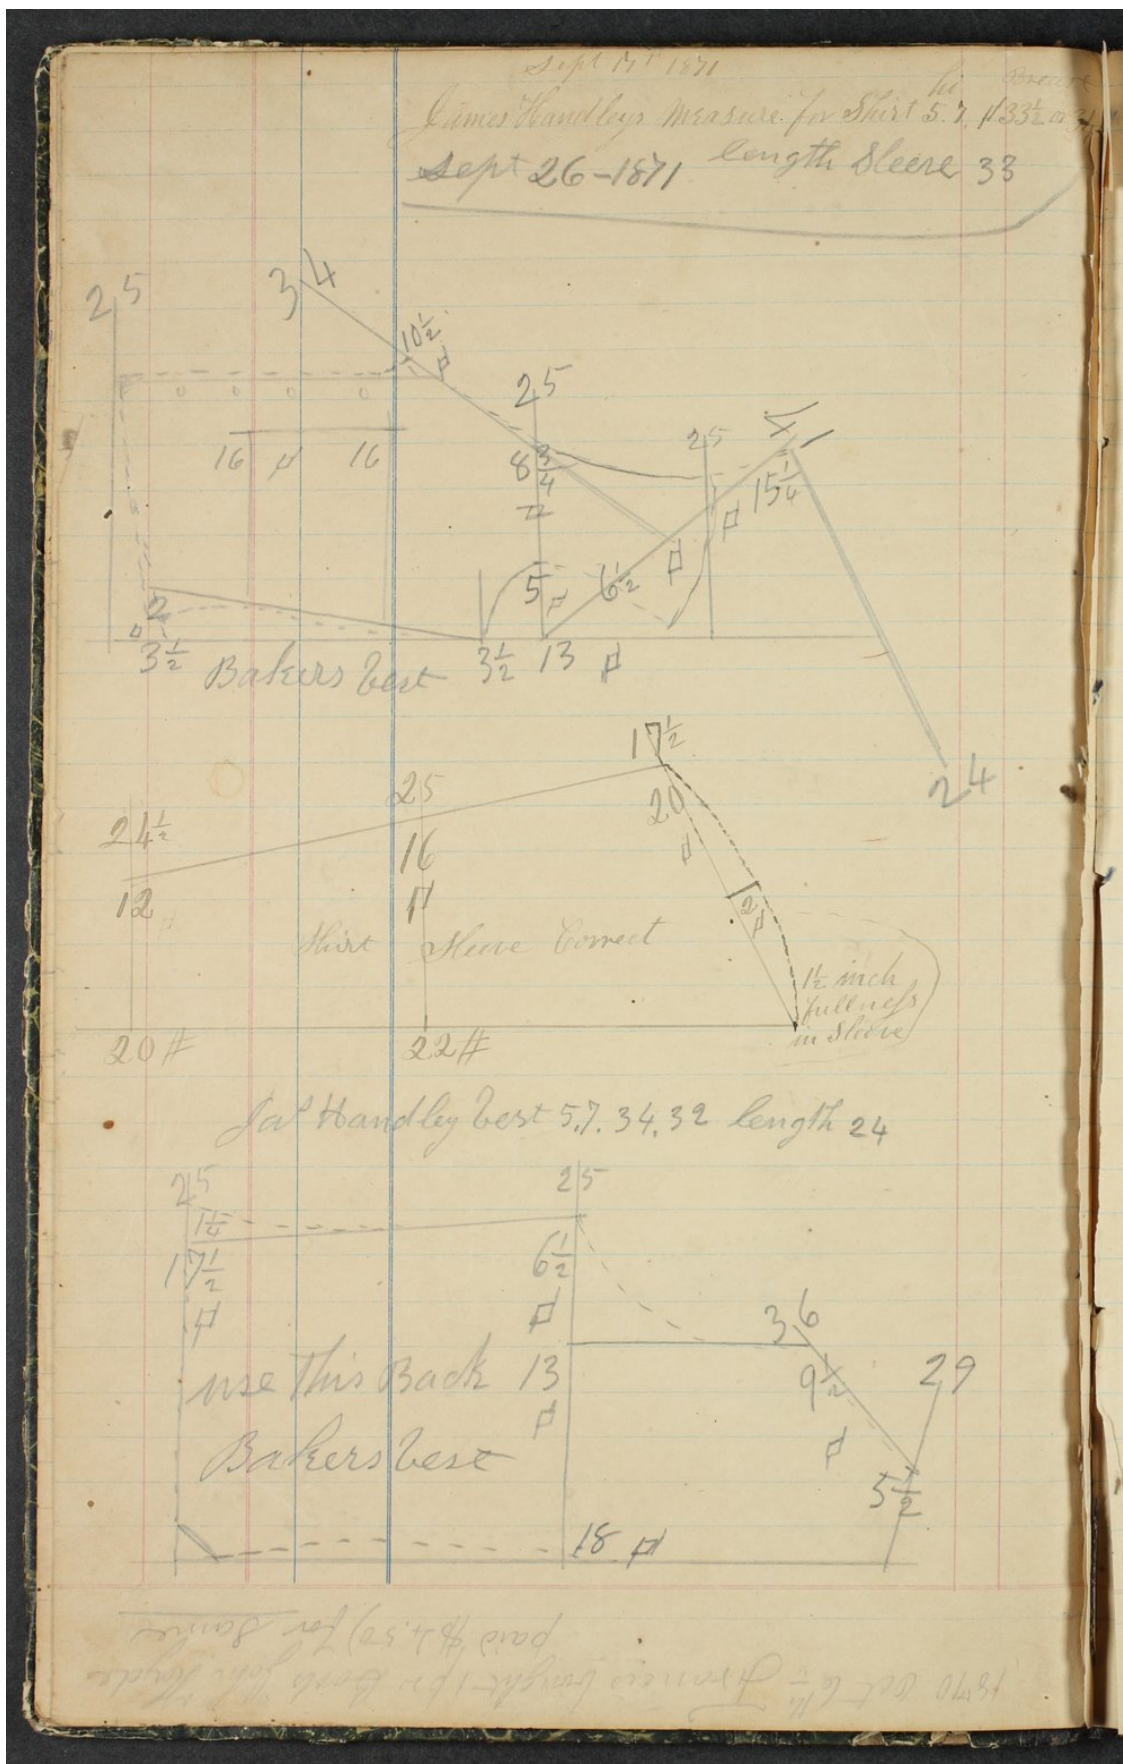 Sept 17th 1871
hi Breast
James Handleys Measure for Shirt 5.7. 33½ or
Sept 26-1871 length Sleeve 33
25
34
10½
25
16 16
8¾
25
41
15¼
5
6½
2
0
3½ Bakers Vest 3½ 13
24
17½
25
20
24½
16
12
2
Shirt Sleeve Correct
1½ inch
fullness
in Sleeve
20 # 22 #
Jas Handley Vest 5.7. 34. 32 length 24
25 25
1¼
17½ 6½
36
use This Back 13 9½ 29
Bakers Vest
5½
18
1870 Oct 6th Francis bought 1 pr Boots John
paid $4.50) for Same